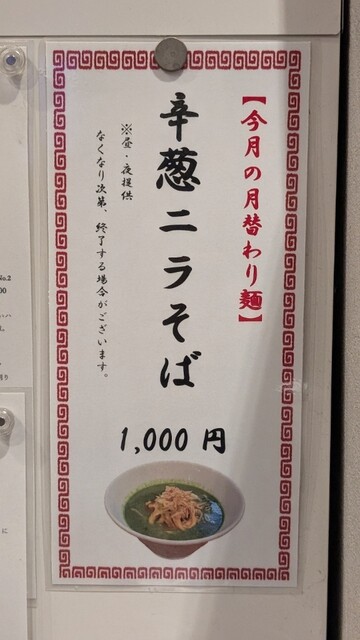 【今月の月替わり麺】
辛葱ニラそば
※昼・夜提供
なくなり次第、終了する場合がございます。
1,000 円
No.2
00